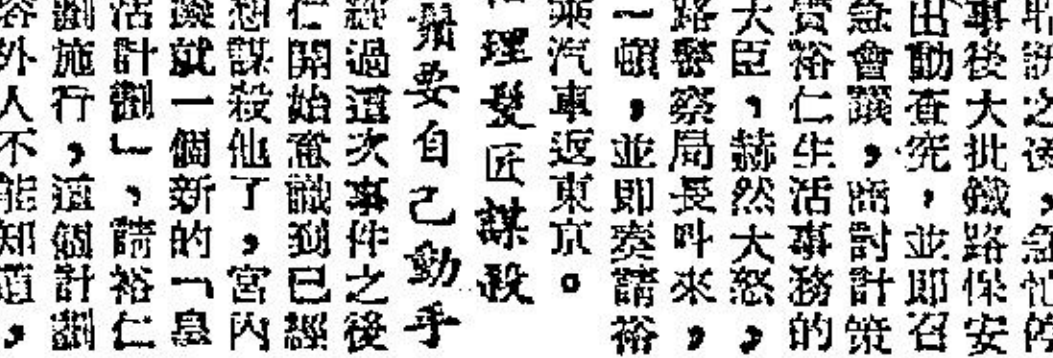 耻訴之後,急忙停
事後大批鐵路保安
出動查究,並即召
急會議,商討計策
責裕仁生活事務的
大臣,赫然大怒,
路警察局長叫來,
一頓,並即奏請裕
乘汽車返東京。
理髮匠謀殺
須要自己動手
經過這次事件之後
仁開始意識到已經
想謀殺他了,宮內
議就一個新的「皇
活計劃」,請裕仁
劃施行,這個計劃
容外人不能知道,